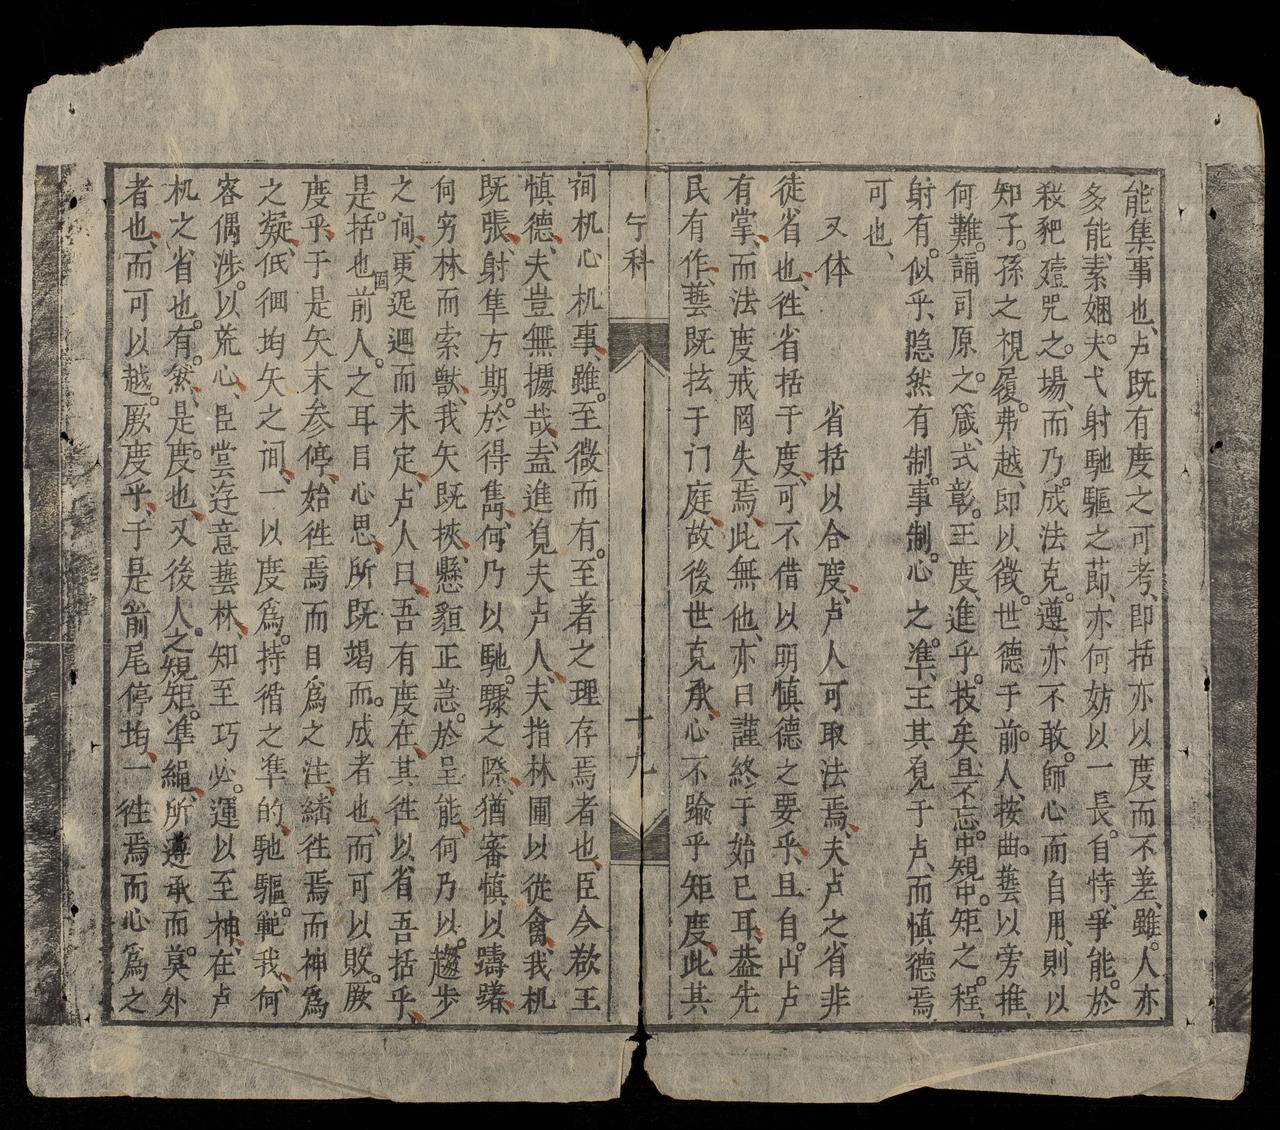 能集事也、占既有度之可考、即括亦以度而不差、雖。人亦
多能、素嫺。夫弋射馳驅之莭、亦何妨以一長。自恃、爭能。於
之。場、而乃。成法克。遵、亦不敢。師心而自用、則以
知子。孫之視履。弗越、即以徴。世德于前。人、按曲。藝以旁推、
何難。誦司原之。箴、式彰。王度、進乎。技矣且不忘。中規。中矩之。程、
射有。似乎、隐然有制。事制。心之。準、王其覓于占、而慎德焉、
可也、
又体 省括以合度、占人可取法焉、夫占之省非
徒省也、徃省括于度、可不借以明慎德之要乎、且自。占
有掌、而法度戒罔失焉、此無他、亦曰謹終于始已耳、葢先
民有作、藝既於于门庭、故後世克承、心不踰乎矩度、此其
十九
祠机心机事、雖。至微而有。至着之理存焉者也、臣今欲王
慎德、夫豈無攥哉、盍進覓夫占人、夫指林圃以從禽、我机
既張、射隼方期。於得雋、何乃以馳。驟之際、猶審慎以躊躇、
何穷林而索獸、我矢既挾、懸貆正急。於呈能、何乃以。趨步
之间、更迟迴而未定、占人曰、吾有度在、其徃以、省吾括乎、
是。括也前人。之耳目心思、所既竭而。成者也、而可以敗。厥
度乎、于是矢末参停、始徃焉而目爲之注、繙徃焉而神爲
之凝、低徊均矢之间、一以度爲。持循之凖的、馳驅。範我、何
容偶涉。以荒心、臣尝存意藝林、知至巧必。運以至神、在占
机之省也。有。然、是度。也、又後人之規矩。凖繩、所遵承而。莫外
者也、而可以越。厥度乎、于是前尾停均、一徃焉而心爲之